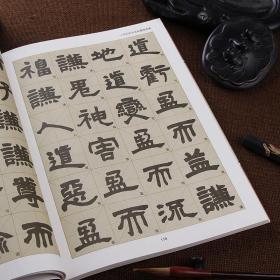 道虧盈而益謙
地道變盈而流
謙鬼神害盈而
福謙人道惡盈
尊而